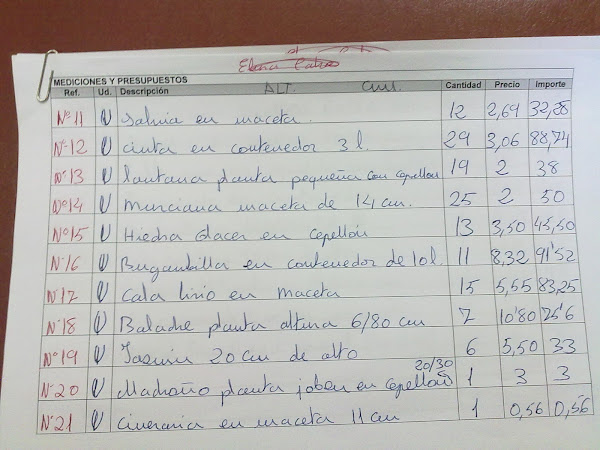 Elena Calvo
MEDICIONES Y PRESUPUESTOS
Ref. Ud. Descripción ALT. Cant. Cantidad Precio Importe
Nº 11 U Salvia en maceta. 12 2,69 32,28
Nº 12 U cinta en contenedor 3 l. 29 3,06 88,74
Nº 13 U lantana planta pequeña con cepellon 19 2 38
Nº 14 U Murciana maceta de 14 cm. 25 2 50
Nº 15 U Hiedra Glacer en cepellón 13 3,50 45,50
Nº 16 U Buganbilla en contenedor de 10l. 11 8,32 91'52
Nº 17 U Cala lirio en maceta 15 5,55 83,25
Nº 18 U Baladre planta altura 6/80 cm 7 10'80 75'6
Nº 19 U Jasmin 20 cm de alto 6 5,50 33
Nº 20 U Madroño planta joben en cepellón 20/30 1 3 3
Nº 21 U cineraria en maceta 11 cm 1 0,56 0,56